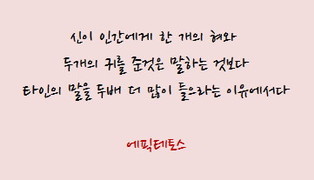 신이 인간에게 한 개의 혀와
두개의 귀를 준것은 말하는 것보다
타인의 말을 두배 더 많이 들으라는 이유에서다
에픽테토스